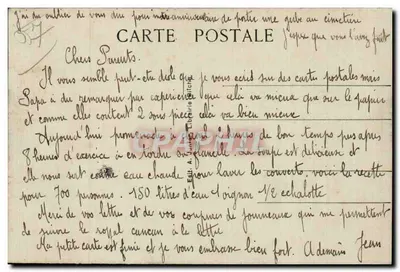 J'ai du oublier de vous dire pour mon anniversaire de porter une gerbe au cimetière
j'espère que vous l'avez fait
CARTE POSTALE
Chers Parents.
Il vous semble peut-etre drole que je vous écris sur des cartes postales mais
Papa a du remarquer par experience que celà va mieux que sur le papier
et comme elles coutent 2 sous pièce celà va bien mieux
Aujourd'hui promenade de bon temps
heures d'exercice à en tordre sa flanelle. La soupe est délicieuse et
elle nous sert comme eau chaude pour laver les couverts, voici la recette
pour 700 personnes. 150 litres d'eau 1 oignon 1/2 echalotte
Merci de vos lettres et de vos coupures de journeaux qui me permettent
de suivre le royal cancan à le
Ma petite carte est finie et je vous embrasse bien fort. A demain Jean